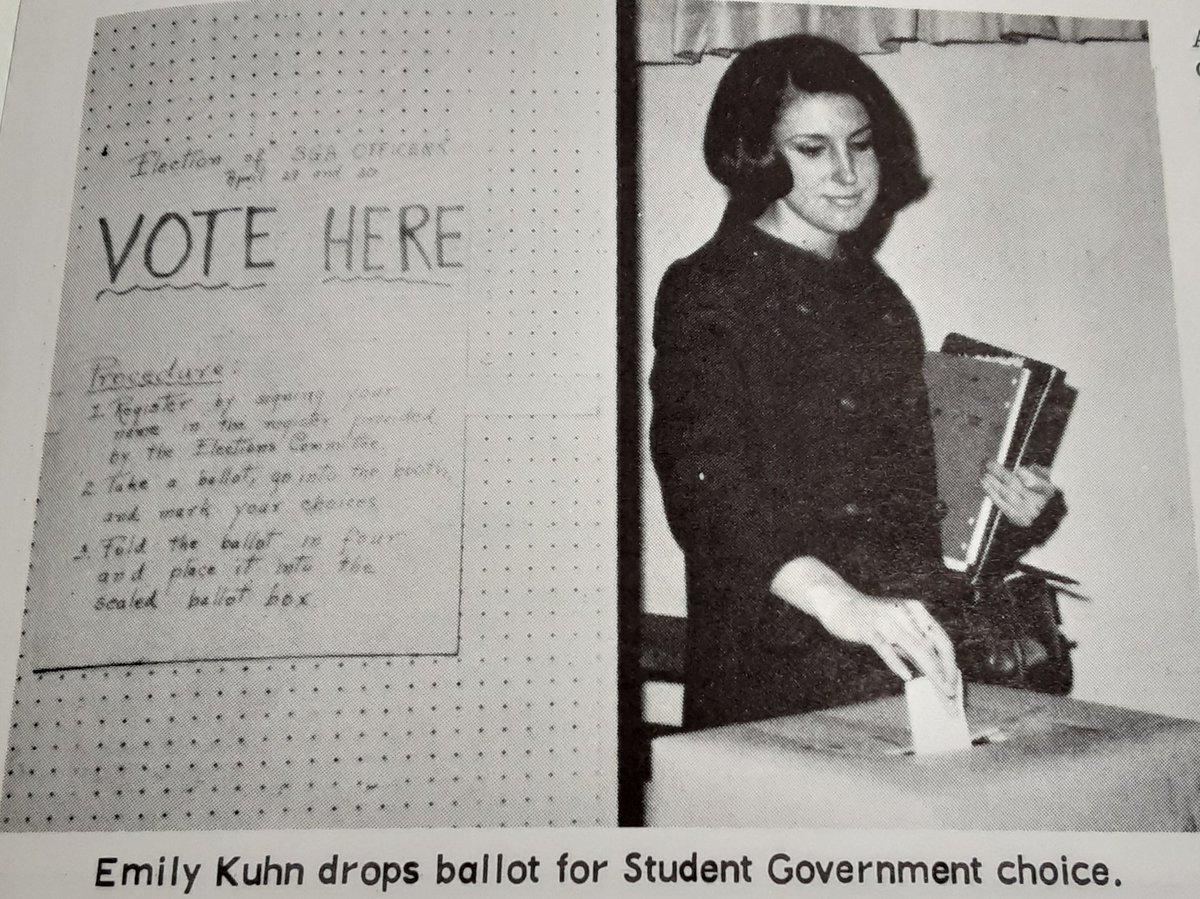 Election of SGA OFFICERS
April 29 and 30
VOTE HERE
Procedure:
1. Register by signing your
name in the register provided
by the Elections Committee.
2. Take a ballot, go into the booth,
and mark your choices
3. Fold the ballot in four
and place it into the
sealed ballot box.
Emily Kuhn drops ballot for Student Government choice.